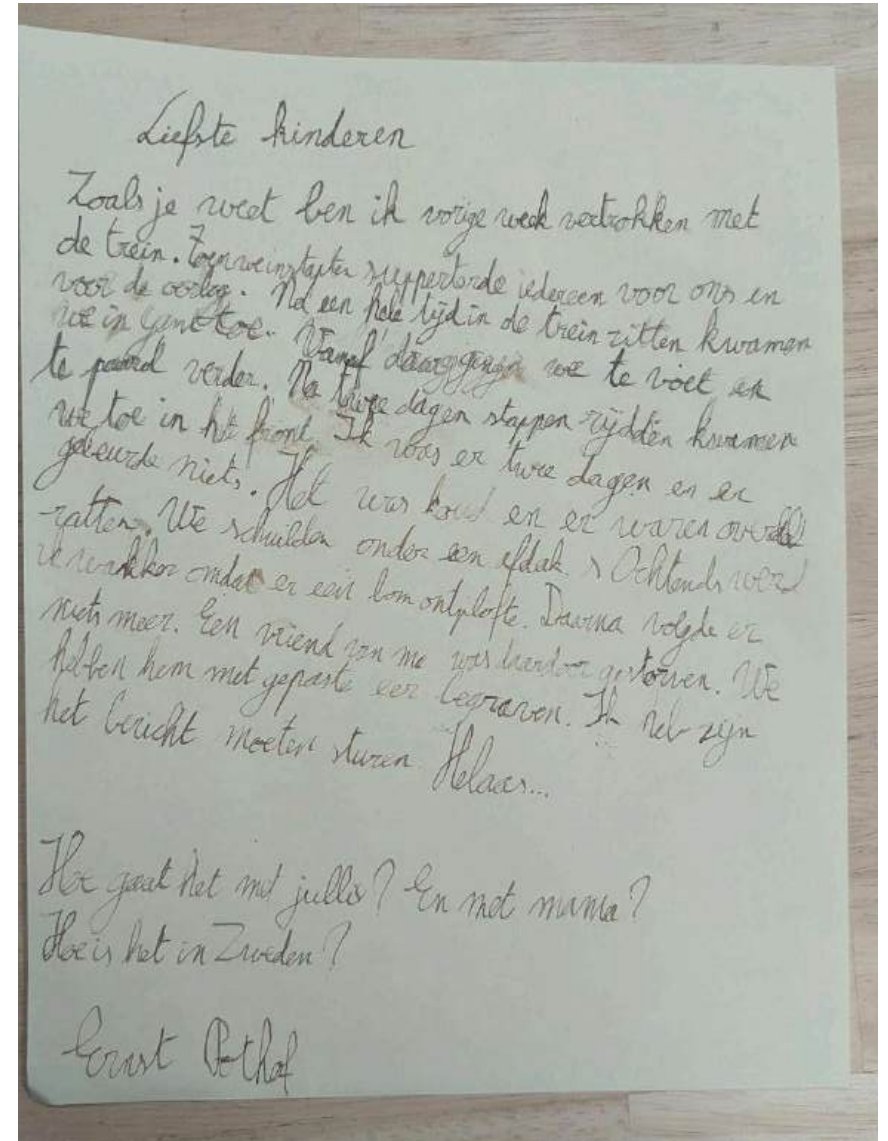 Liefste kinderen
Zoals je weet ben ik vorige week vertrokken met
de trein. Toen we instapten supperterde iedereen voor ons en
voor de oorlog. Na een hele tijd in de trein zitten kwamen
we in Gent toe. Vanaf daar gingen we te voet en
te paard verder. Na twee dagen stappen rijdden kwamen
we toe in het front. Ik was er twee dagen en er
gebeurde niets. Het was koud en er waren overal
ratten. We schuilden onder een afdak. s Ochtends werd
ik wakker omdat er een bom ontplofte. Daarna volgde er
niets meer. Een vriend van me was daardoor gestorven. We
hebben hem met gepaste eer begraven. Ik heb zijn
het bericht moeten sturen. Helaas...
Hoe gaat het met jullie? En met mama?
Hoe is het in Zweden?
Ernst